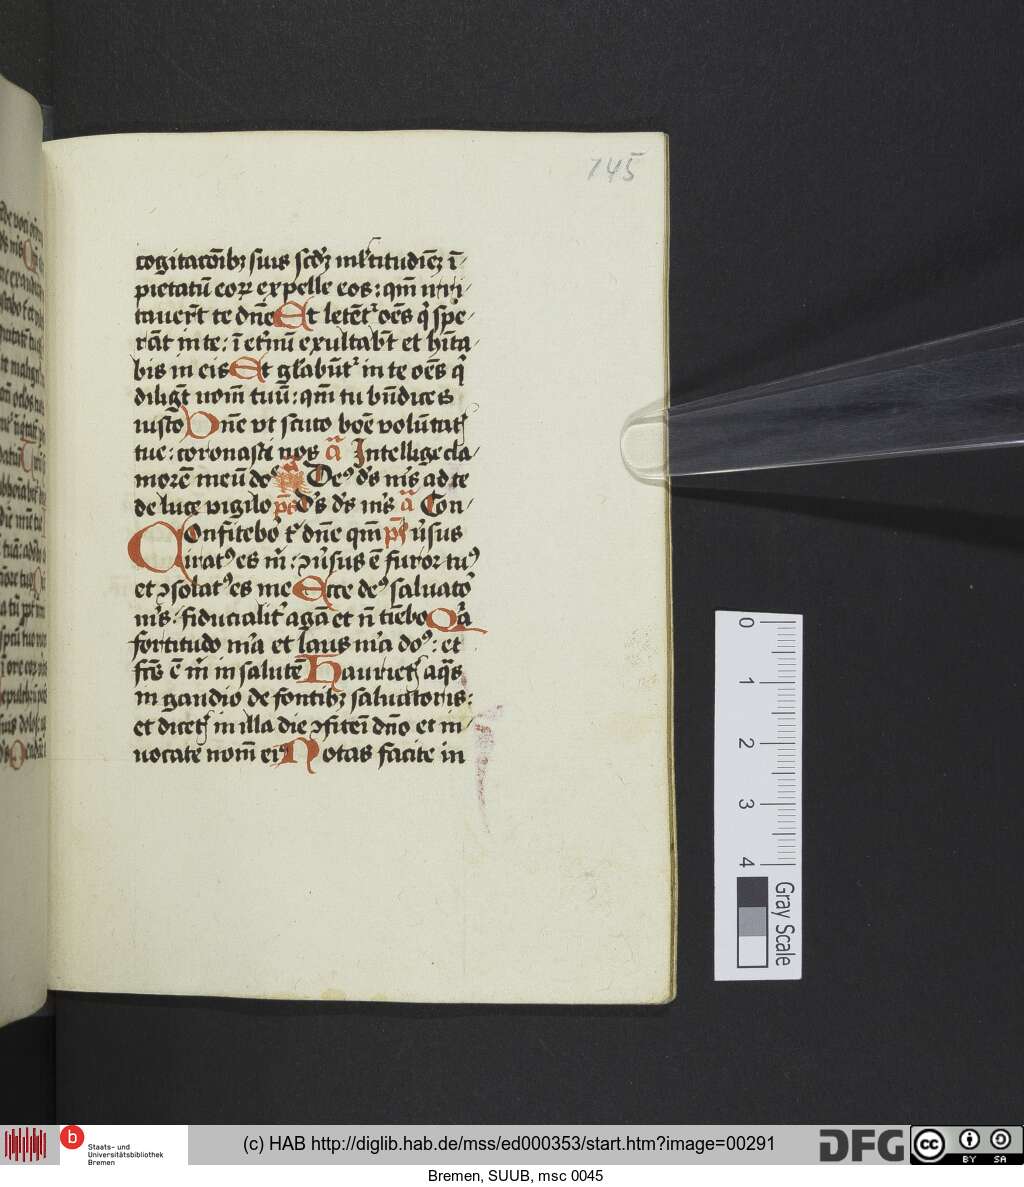 145
cogitatōibꝫ suis scd'ꝫ ml'titudīeꝫ ī-
pietatū eoꝝ expelle eos: qm̄ irri-
tauer̄t te dn̄e Et letēt' oēs q' spe-
rāt in te: ī et'nū exultabt̄ et hīta-
bis in eis Et gl'abūt' in te oēs q'
diligt̄ nom̄ tuū: qm̄ tu bn̄dices
iusto Dn̄e vt scuto boē volūtatꝭ
tue: coronasti nos a͞ Intellige cla-
morē meū do' De' ds̄ m's ad te
de luce vigilo p̄s Ds̄ ds̄ m's a͞ Con-
Confitebo' t' dn̄e qm̄ p̄s ūsus
irat' es m': ꝯūsus ē furor tu'
et ꝯsolat' es me Ecce de' saluato'
m's: fiducialit' agā et n̄ tīebo Qa͞
fortitudo m'a et laus m'a do': et
fc̄s ē m' in salutē Haurietꝭ aq̄s
in gaudio de fontibꝫ saluatoris:
et dicetꝭ in illa die ꝯfitēi dn̄o et in-
uocate nom̄ ei' Notas facite in
0
1
2
3
4
Gray Scale
b
Staats- und
Universitätsbibliothek
Bremen
(c) HAB http://diglib.hab.de/mss/ed000353/start.htm?image=00291
DFG
cc
BY SA
Bremen, SUUB, msc 0045